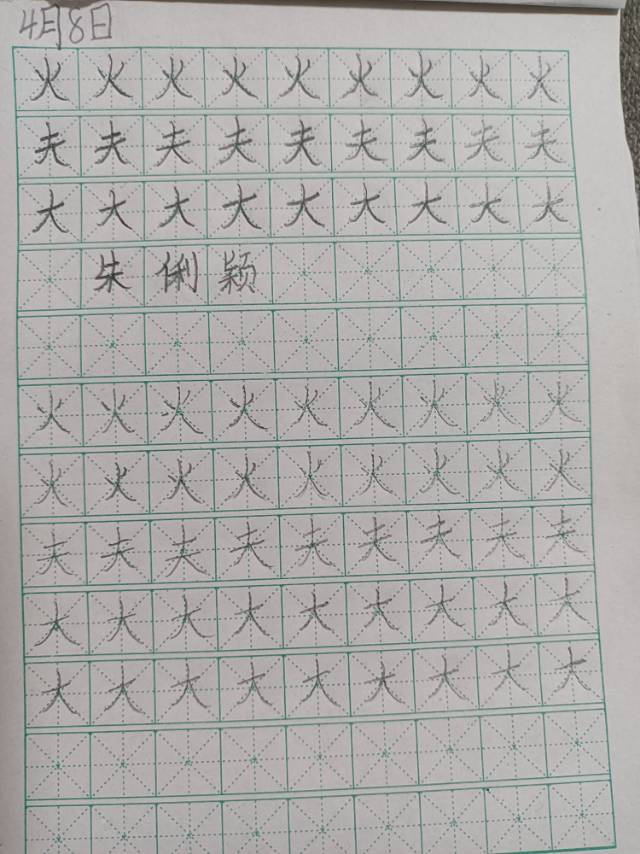 4月8日
火火火火火火火火火
夫夫夫夫夫夫夫夫夫
大大大大大大大大大
朱俐颖
火火火火火火火火火
火火火火火火火火火
夫夫夫夫夫夫夫夫夫
大大大大大大大大大
大大大大大大大大大